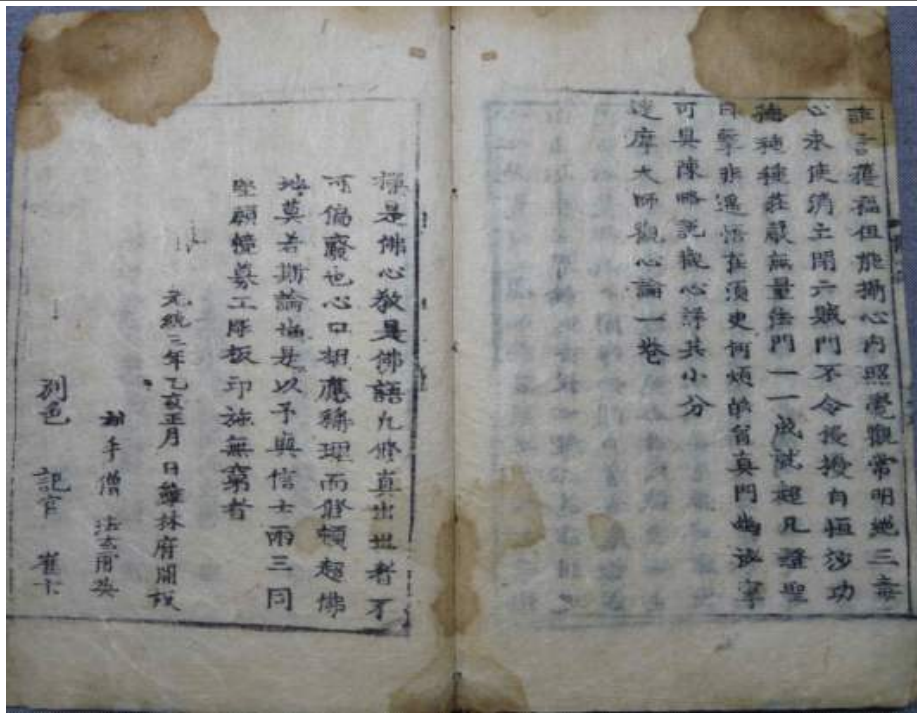 誰言獲福但能攝心內照覺觀常明絶三毒
心永使消亡閉六賊門不令侵擾自恒沙功
德種種莊嚴無量法門一一成就超凡證聖
目擊非遙悟在須臾何煩皓首真門幽秘寧
可具陳略說觀心詳其小分
達摩大師觀心論一卷
禪是佛心教是佛語凡修真出世者不
可偏廢也心口相應稱理而修頓超佛
地莫若斯論也是以予與信士兩三同
堅願募工彫板印施無窮者
元統三年乙亥正月 日雞林府開板
手僧 法
別色 記官 崔